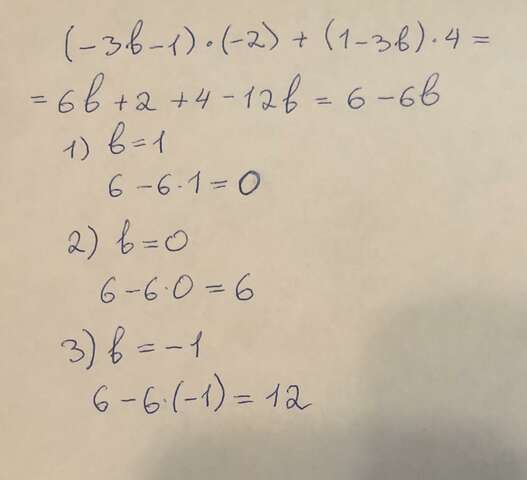 (-3в-1)·(-2) + (1-3в)·4 =
= 6в + 2 + 4 - 12в = 6 - 6в
1) в = 1
6 - 6·1 = 0
2) в = 0
6 - 6·0 = 6
3) в = -1
6 - 6·(-1) = 12